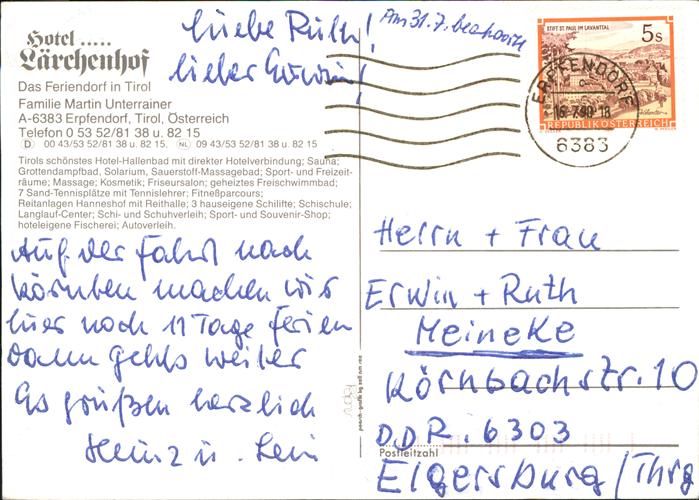 Hotel .....
Lärchenhof
Das Feriendorf in Tirol
Familie Martin Unterrainer
A-6383 Erpfendorf, Tirol, Österreich
Telefon 0 53 52/81 38 u. 82 15
D 00 43/53 52/81 38 u. 82 15, NL 09 43/53 52/81 38 u. 82 15
Tirols schönstes Hotel-Hallenbad mit direkter Hotelverbindung; Sauna;
Grottendampfbad, Solarium, Sauerstoff-Massagebad; Sport- und Freizeit-
räume; Massage; Kosmetik; Friseursalon; geheiztes Freischwimmbad;
7 Sand-Tennisplätze mit Tennislehrer; Fitneßparcours;
Reitanlagen Hanneshof mit Reithalle; 3 hauseigene Schilifte; Schischule;
Langlauf-Center; Schi- und Schuhverleih; Sport- und Souvenir-Shop;
hoteleigene Fischerei; Autoverleih.
Am 31.7.
Liebe Ruth!
lieber Erwin!
Auf der Fahrt nach
Kärnten machen wir
hier noch 11 Tage Ferien
Dann gehts weiter
Es grüßen herzlich
Heinz u.
STIFT ST. PAUL IM LAVANTTAL
5s
REPUBLIK ÖSTERREICH
ERPFENDORF
6383
Herrn + Frau
Erwin + Ruth
Meineke
Körnbachstr. 10
DDR. 6303
Postleitzahl
Elgersburg/Thrg